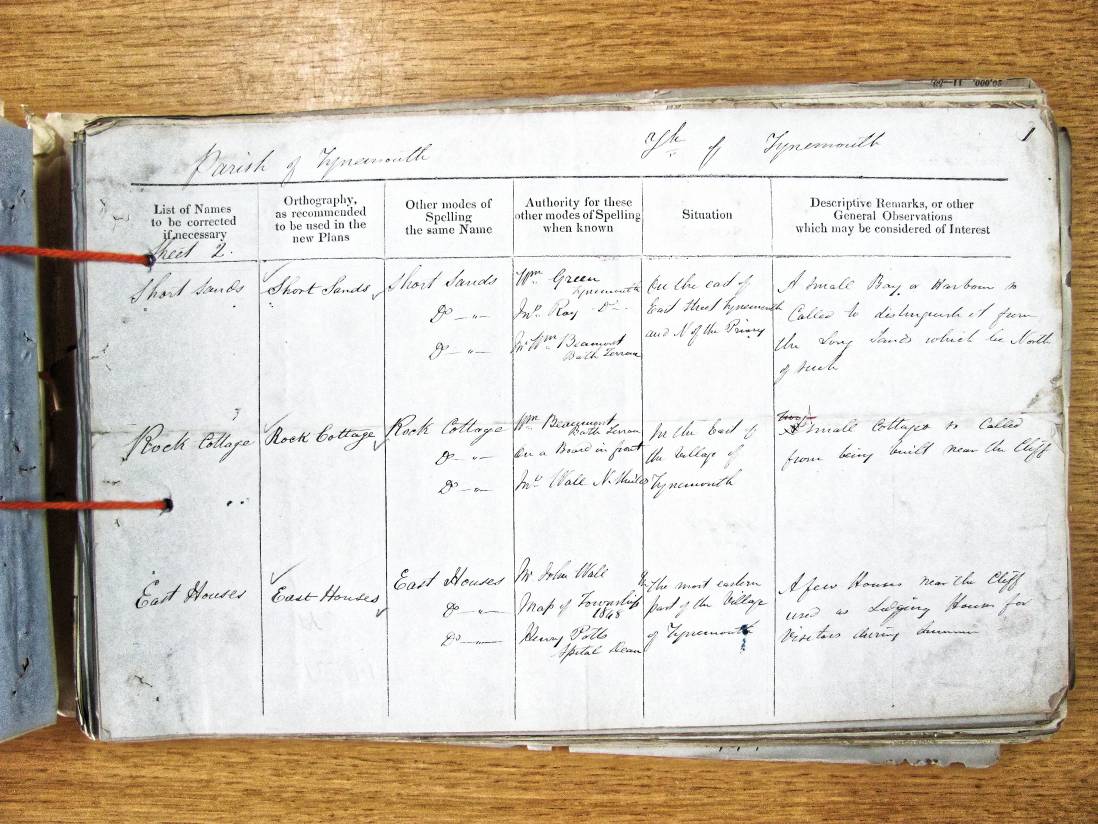 Parish of Tynemouth
Tp of Tynemouth
1
List of Names
to be corrected
if necessary
Orthography,
as recommended
to be used in the
new Plans
Other modes of
Spelling
the same Name
Authority for these
other modes of Spelling
when known
Situation
Descriptive Remarks, or other
General Observations
which may be considered of Interest
Sheet 2.
Short Sands
Short Sands
Short Sands
Do — "—
Do — "—
Wm Green
Tynemouth
Jno. Ray Do
Mr Wm Beaumont
Bath Terrace
On the east of
East Street Tynemouth
and N of the Priory
A Small Bay or Harbour so
Called to distinguish it from
the Long Sands which lie North
of such
Rock Cottage
Rock Cottage
Rock Cottage
Do — "—
Do — "—
Wm Beaumont
Bath Terrace
On a Board in front
Mr Wall N. Shields
In the East of
the Village of
Tynemouth
Two
A Small Cottages so Called
from being built near the Cliff
East Houses
East Houses
East Houses
Do — "—
Do — "—
Mr John Wall
Map of Township
1848
Henry Potts
Spital Dean
The most eastern
part of the Village
of Tynemouth
A few Houses near the Cliff
used as Lodging Houses for
Visitors during Summer